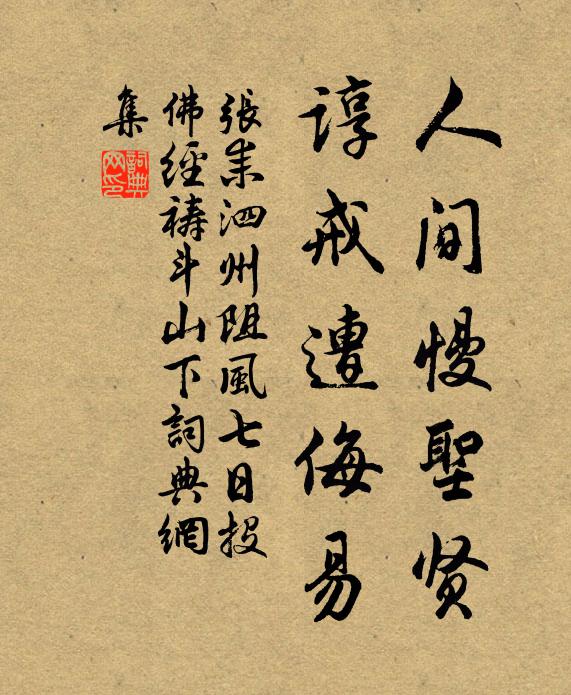 人間慢聖贤
諄戒遭侮易
張耒泗州阻風七日投
佛經禱斗山下詞典網
集
詞典
网印